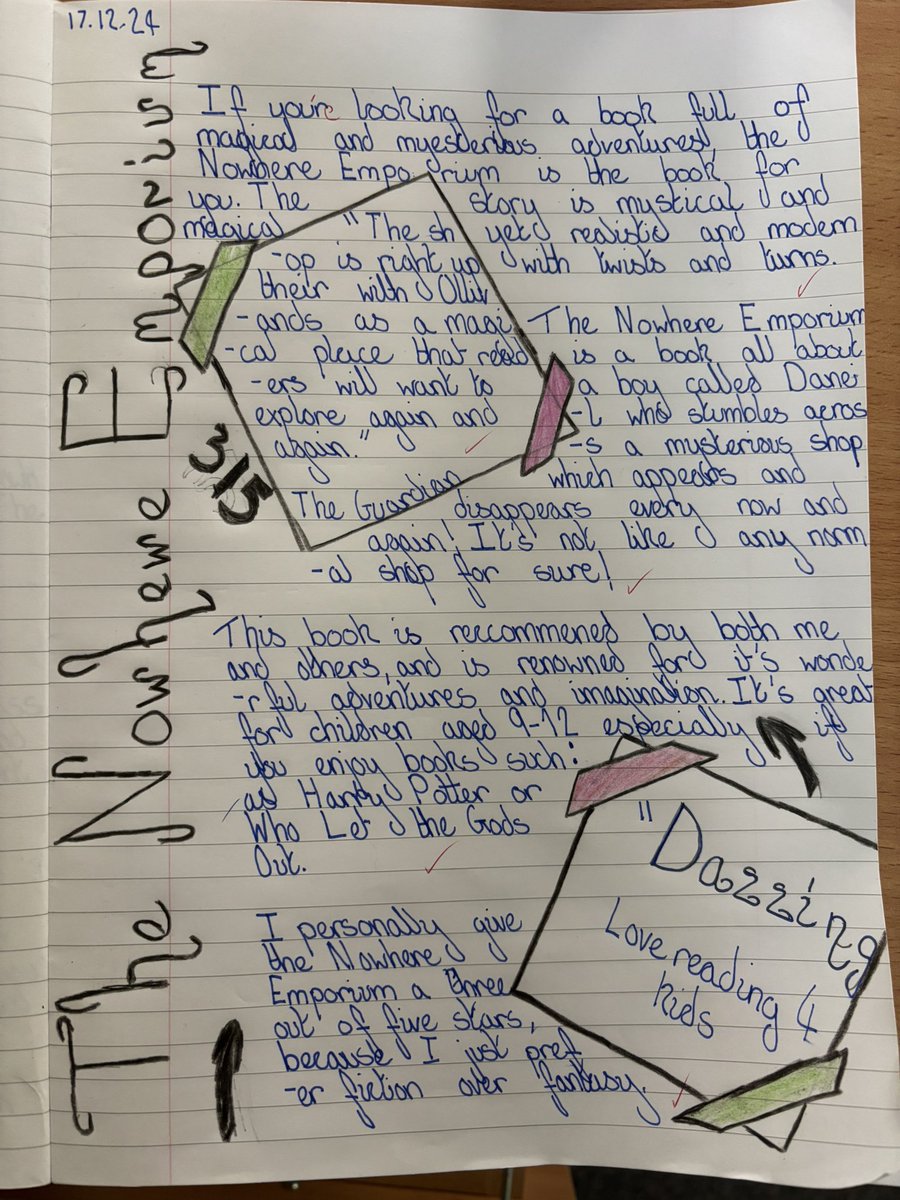 17.12.24
The Nowhere Emporium
If you're looking for a book full of
magical and myesterious adventures, the
Nowhere Emporium is the book for
you. The story is mystical and
magical yet realistic and modern
with twists and turns.
"The sh
-op is right up
their with Olliv
-ands as a magi
-cal pleace that read
-ers will want to
explore again and
again."
The Guardian
3/5
The Nowhere Emporium
is a book all about
a boy called Danei
-l who stumbles acros
-s a mysterious shop
which appears and
disappears every now and
again! It's not like any norm
-al shop for sure!
This book is reccommened by both me
and others, and is renowned for it's wonde
-rful adventures and imagination. It's great
for children aged 9-12 especially if
you enjoy books such:
as Harry Potter or
Who Let the Gods
Out.
"Dazzing
Love reading 4
kids
I personally give
the Nowhere
Emporium a three
out of five stars,
because I just pref
-er fiction over fantasy.